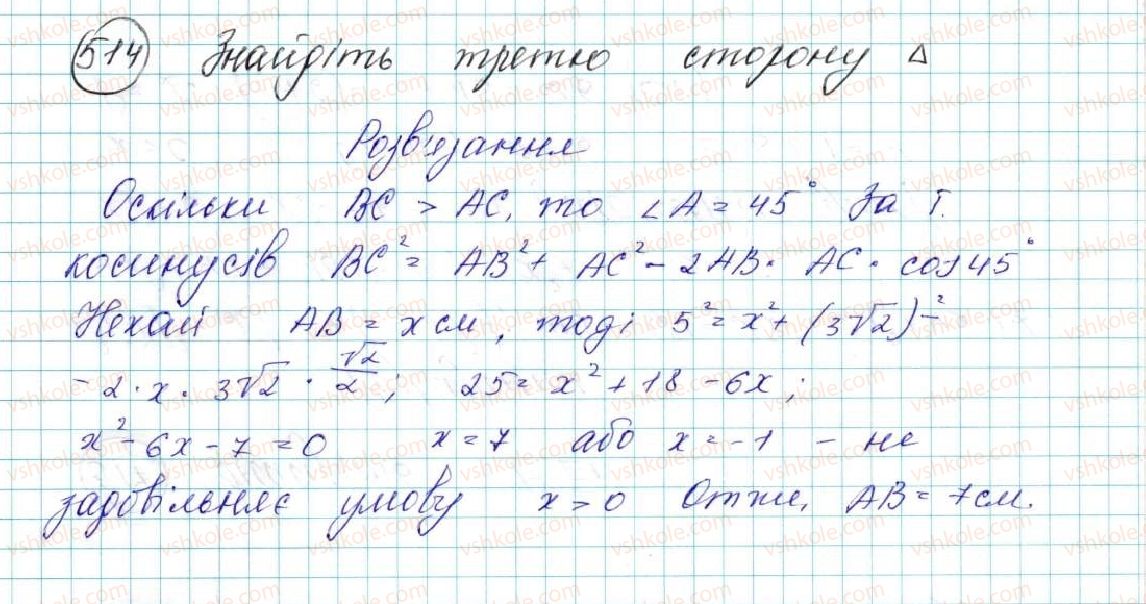 514 Знайдіть третю сторону Δ
Розв'язання
Оскільки BC > AC, то ∠A = 45° За т.
косинусів BC² = AB² + AC² - 2AB · AC · cos 45°
Нехай AB = x см, тоді 5² = x² + (3√2)² -
- 2 · x · 3√2 · √2/2; 25 = x² + 18 - 6x;
x² - 6x - 7 = 0 x = 7 або x = -1 - не
задовільняє умову x > 0 Отже, AB = 7 см.
vshkole.com